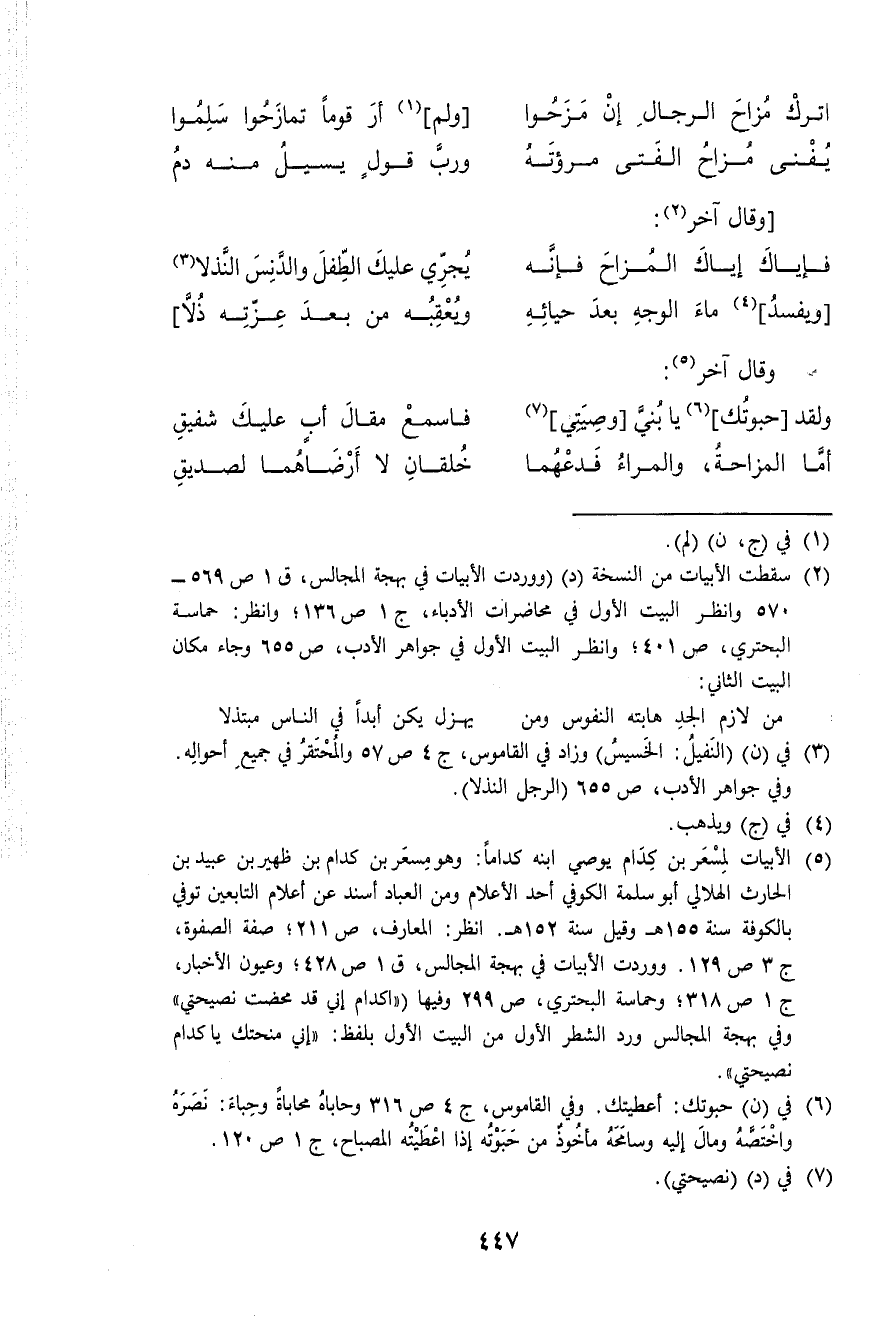 اتركْ مُزاحَ الرجالِ إنْ مَزَحُوا [ولم]⁽¹⁾ أرَ قوماً تمازَحُوا سَلِمُوا
يُفْنى مُزاحُ الفَتى مروّتَهُ وربَّ قولٍ يسيلُ منه دمُ
[وقال آخر⁽٢⁾:
فإياكَ إياكَ المُزاحَ فإنَّه يُجرِّي عليكَ الطِّفلَ والدَّنِسَ النَّذلا⁽٣⁾
[ويفسدُ]⁽٤⁾ ماءَ الوجهِ بعدَ حيائِهِ ويُعْقِبُه من بعدَ عِزّتِه ذُلَّا]
وقال آخر⁽٥⁾:
ولقد [حبوتُك]⁽٦⁾ يا بُنيَّ [وصِيَتِي]⁽٧⁾ فاسمعْ مقالَ أبٍ عليكَ شفيقِ
أمَّا المزاحةُ، والمراءُ فَدعْهُما خُلقانِ لا أَرْضَاهُما لصديقِ
(١) في (ج، ن) (لم).
(٢) سقطت الأبيات من النسخة (د) (ووردت الأبيات في بهجة المجالس، ق ١ ص ٥٦٩ ـ
٥٧٠ وانظر البيت الأول في محاضرات الأدباء، ج ١ ص ١٣٦؛ وانظر: حماسة
البحتري، ص ٤٠١؛ وانظر البيت الأول في جواهر الأدب، ص ٦٥٥ وجاء مكان
البيت الثاني:
من لازم الجدِ هابته النفوس ومن يهزل يكن أبداً في الناس مبتذلا
(٣) في (ن) (النَفيلُ: الخَسيسُ) وزاد في القاموس، ج ٤ ص ٥٧ والمُحْتَقرُ في جميعِ أحوالِه.
وفي جواهر الأدب، ص ٦٥٥ (الرجل النذلا).
(٤) في (ج) ويذهب.
(٥) الأبيات لِمسْعَر بن كِدَام يوصي ابنه كداماً: وهو مِسعَر بن كدام بن ظهير بن عبيد بن
الحارث الهلالي أبو سلمة الكوفي أحد الأعلام ومن العباد أسند عن أعلام التابعين توفي
بالكوفة سنة ١٥٥هـ وقيل سنة ١٥٢هـ. انظر: المعارف، ص ٢١١؛ صفة الصفوة،
ج ٣ ص ١٢٩. ووردت الأبيات في بهجة المجالس، ق ١ ص ٤٢٨؛ وعيون الأخبار،
ج ١ ص ٣١٨؛ وحماسة البحتري، ص ٢٩٩ وفيها («اكدام إني قد محضت نصيحتي»
وفي بهجة المجالس ورد الشطر الأول من البيت الأول بلفظ: «إني منحتك يا كدام
نصيحتي».
(٦) في (ن) حبوتك: أعطيتك. وفي القاموس، ج ٤ ص ٣١٦ وحاباهُ محاباةً وحِباءَ: نَصَرَهُ
واخْتَصَّهُ ومالَ إليه وسامَحَهُ مأخُوذٌ من حَبَوْتُه إذا اعْطَيْتُه المصباح، ج ١ ص ١٢٠.
(٧) في (د) (نصيحتي).
٤٤٧